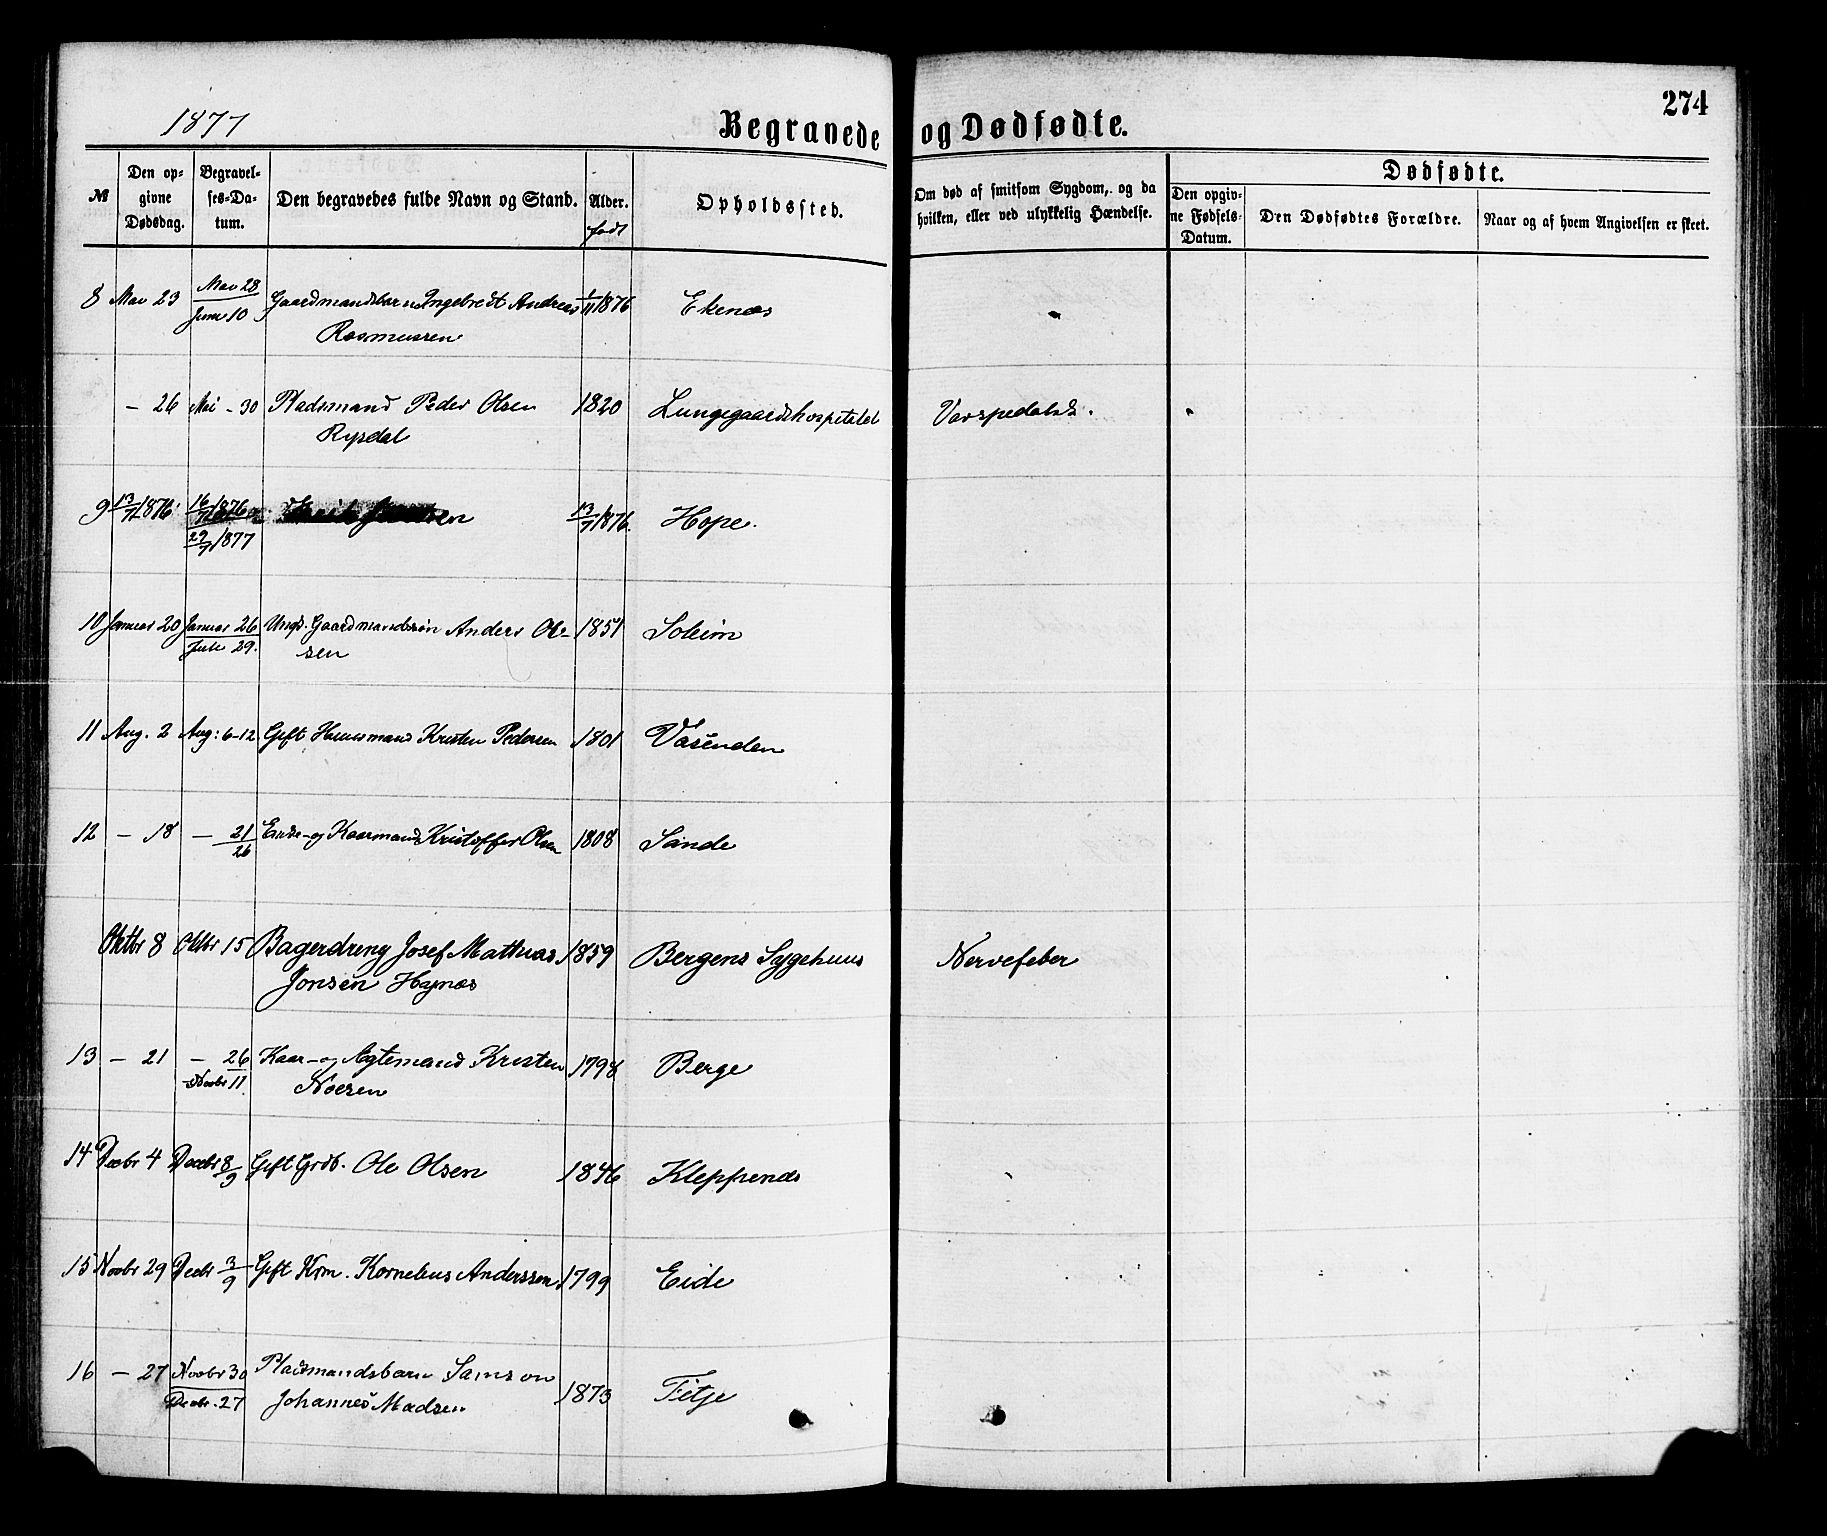 274
1877
Begravede og Dødfødte.
№ Den opgivne Dødsdag. Begravelses-Datum. Den begravedes fulde Navn og Stand. Alder. født Opholdssted. Om død af smitsom Sygdom, og da hvilken, eller ved ulykkelig Hændelse. Dødfødte.
Den opgivne Fødsels-Datum. Den Dødfødtes Forældre. Naar og af hvem Angivelsen er skeet.
8 Mai 23 Mai 28 Gaardmandsbarn Ingebredt Andreas 1/11 1876 Ekenæs
Juni 10 Rasmussen
- 26 Mai - 30 Pladsmand Peder Olsen 1820 Lungegaardshospitalet
Rysdal
9 13/7 1876 16/7 1876 13/7 1876. Hope.
29/7 1877
10 Januar 20 Januar 26 Ungk. Gaardmandssøn Anders Ol- 1851 Soleim
Juli 29. sen
11 Aug. 2 Aug: 6-12 Gift Huusmand Kristen Pedersen 1801 Vasenden
12 - 18 - 21/26 Enke- og Kaarmand Kristoffer Olsen 1808 Sande
Oktbr 8 Oktbr 15 Bagerdreng Josef Mathias 1859 Bergens Sygehuus Nervefeber
Jonsen
13 - 21 - 26 Kaar- og Ægtemand Kristen 1798 Berge
Novbr 11. Noesen
14 Decbr 4 Decbr 8/9 Gift Grdb. Ole Olsen 1846 Kleppenes
15 Novbr 29 Decbr 3/9 Gift Krm. Kornelius Anderssen 1799 Eide
16 - 27 Novbr 30 Pladsmandsbarn Samson 1873 Fitje
Decbr. 27 Johannes Madsen